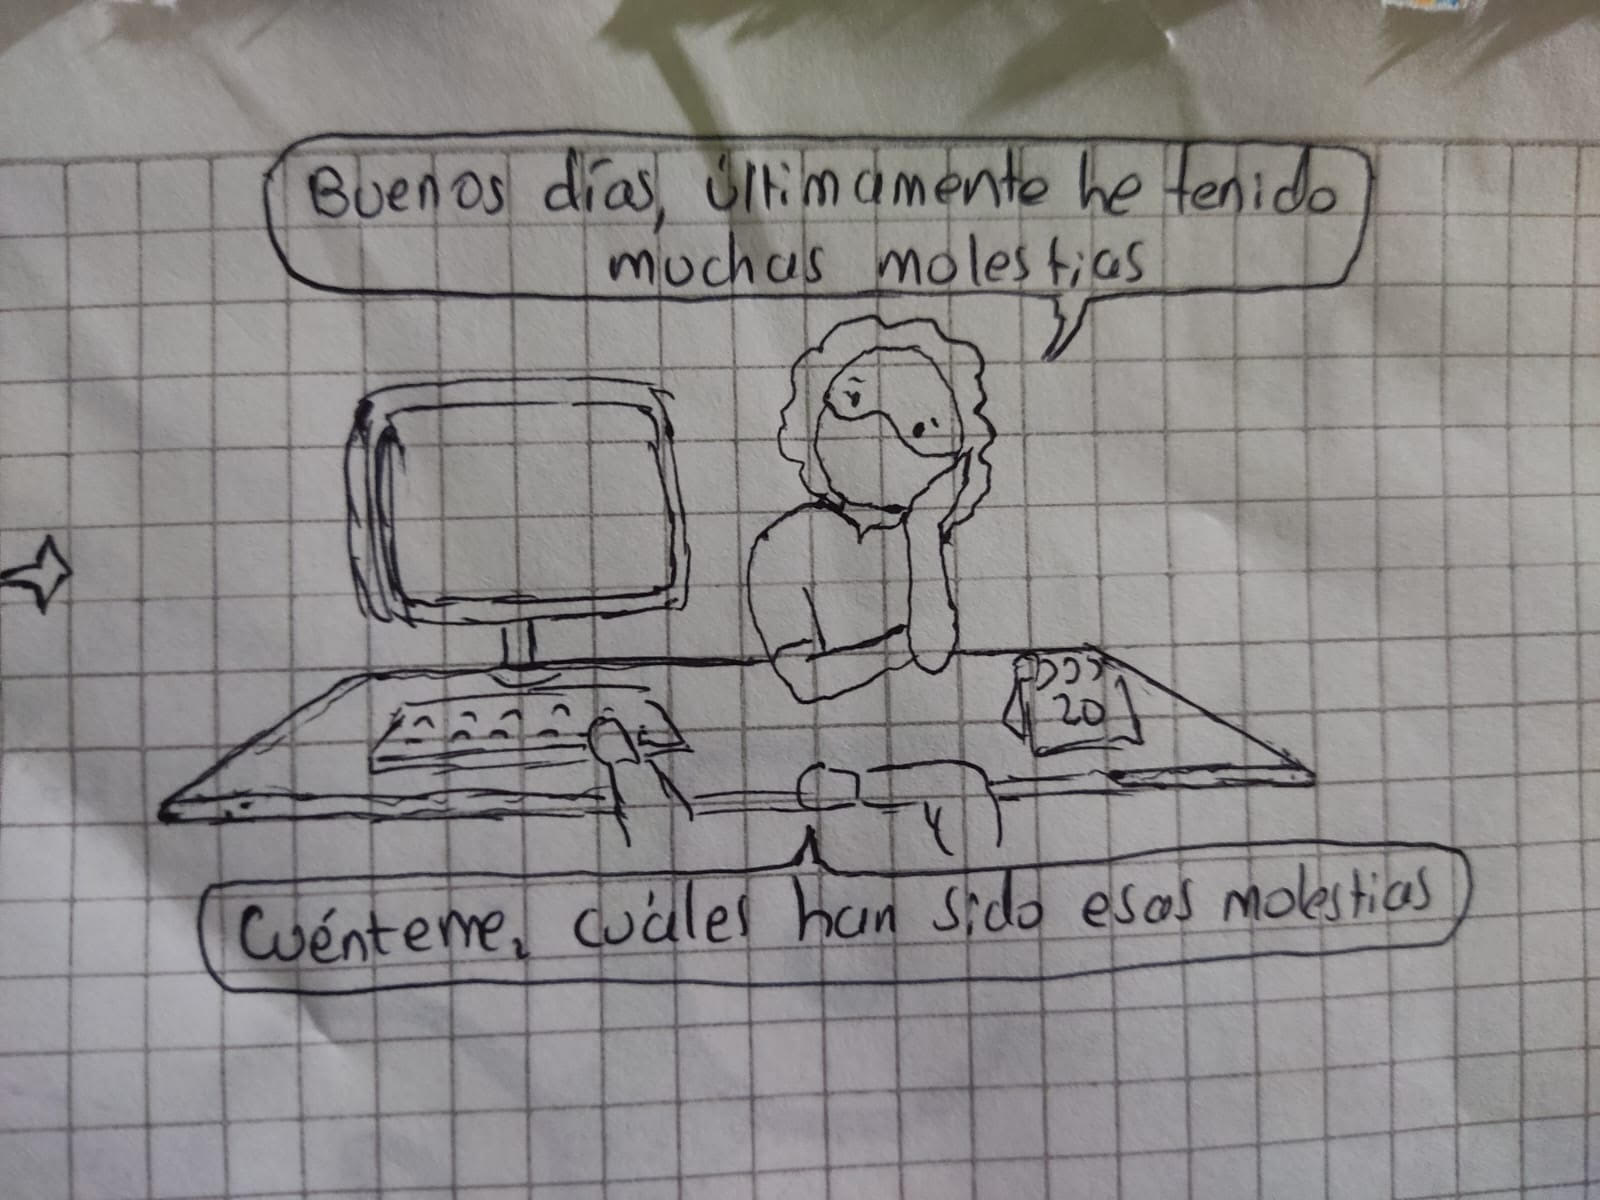 Buenos días, últimamente he tenido
muchas molestias
20
Cuénteme, cuáles han sido esas molestias